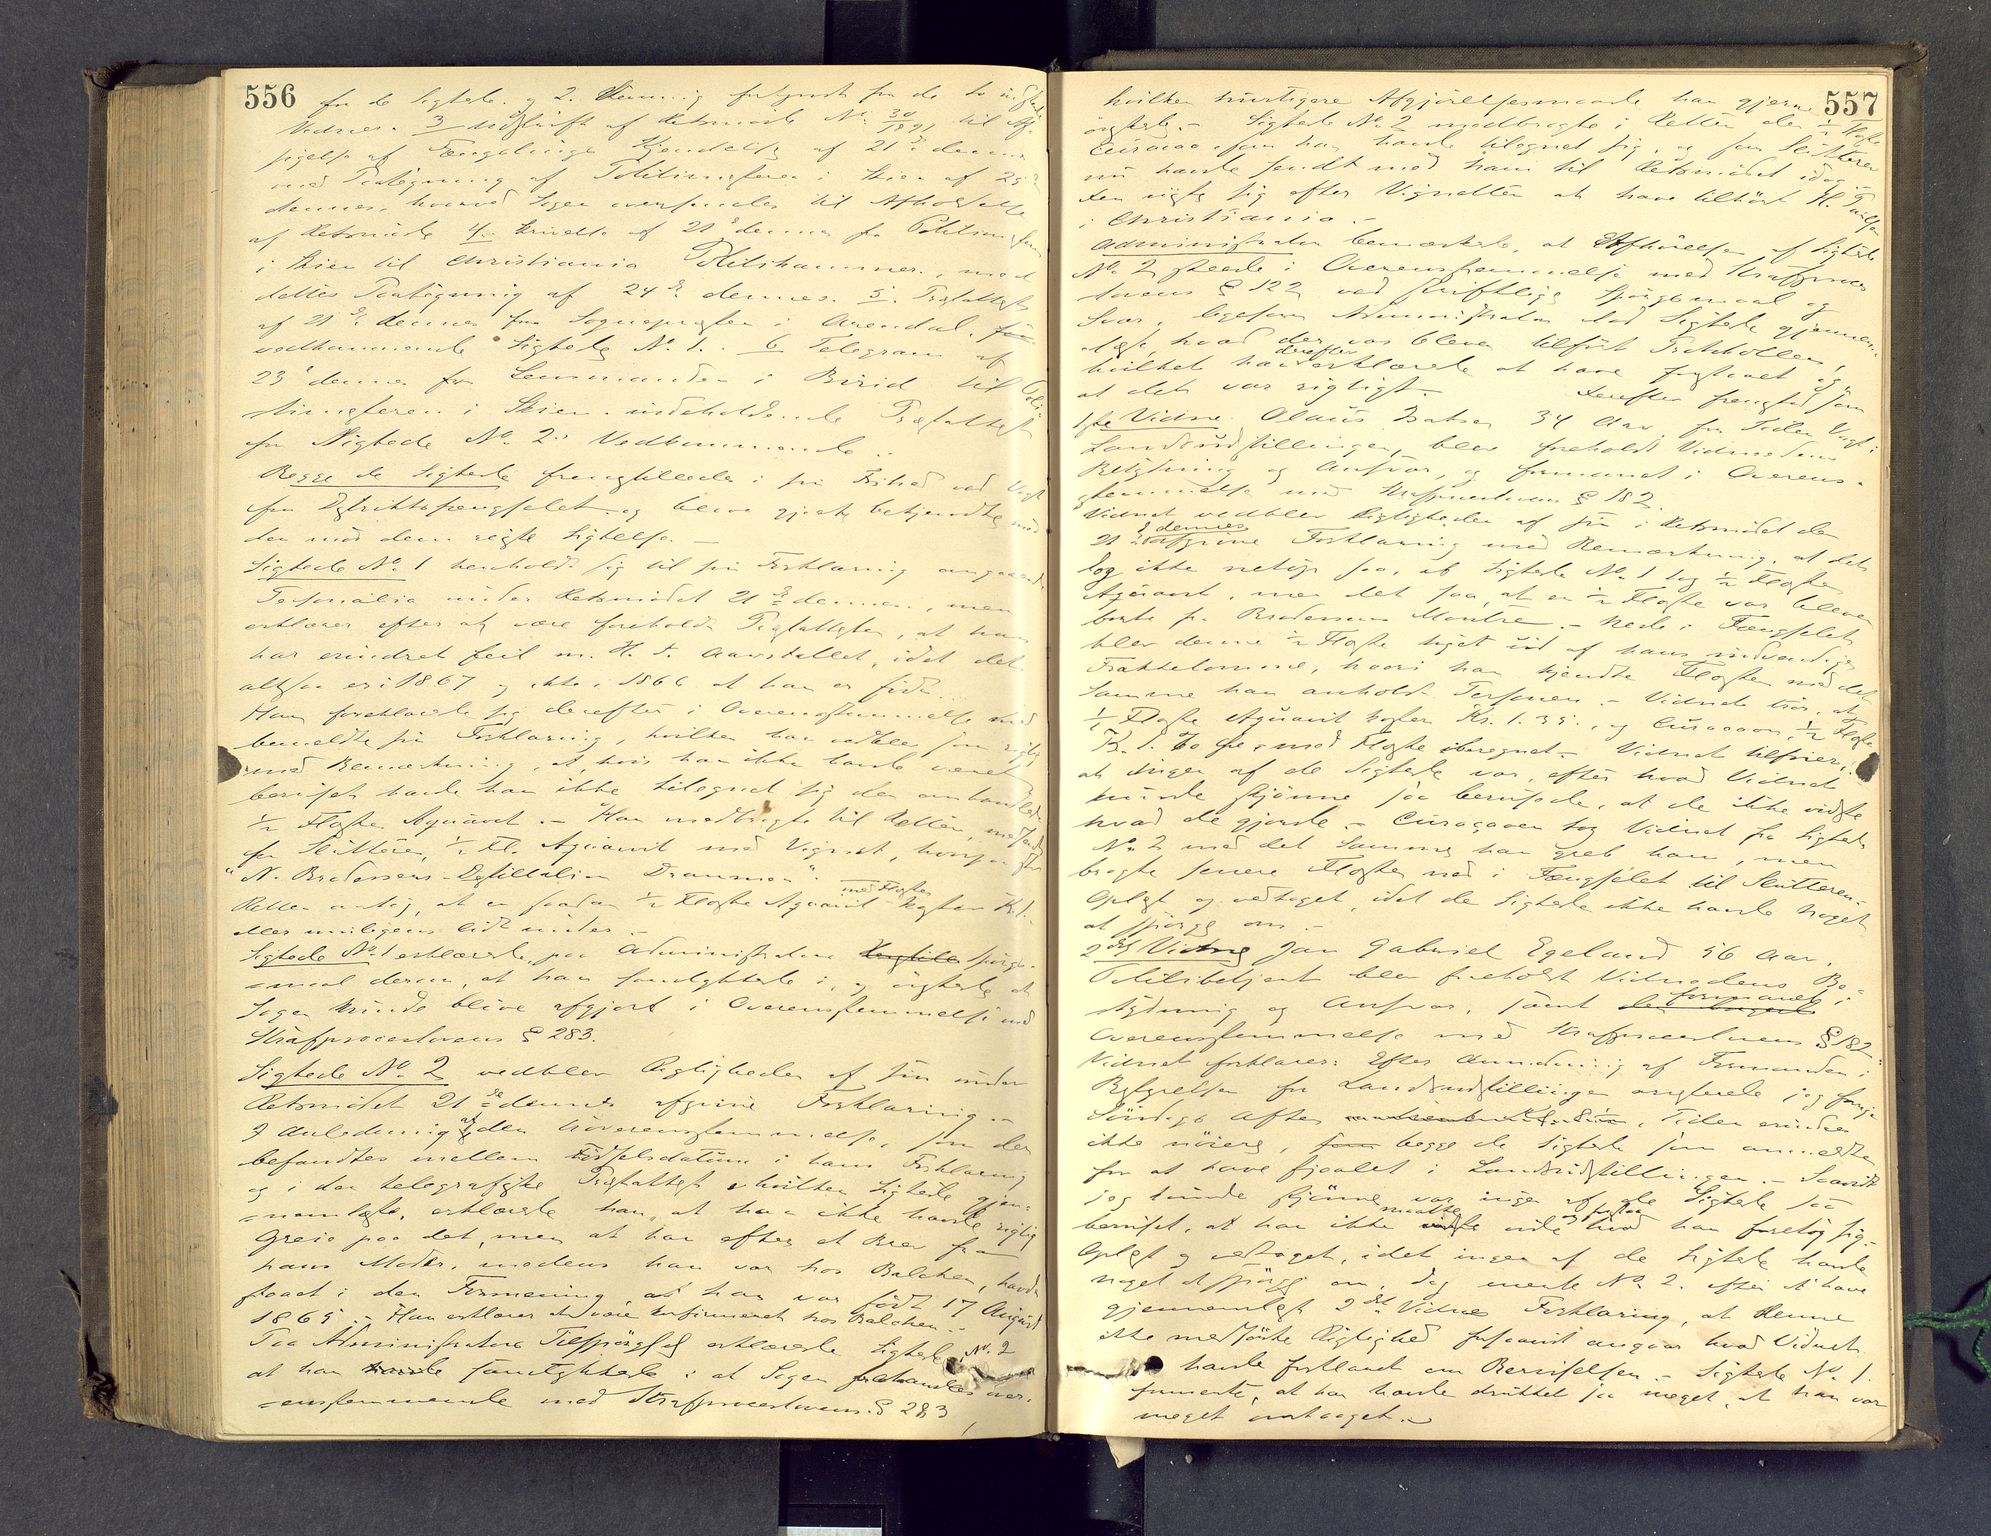 556
for de Sigtede. og 2. Stevning forkyndt for de to indkaldte
Vidner. 3 Udskrift af Retsmøde No. 30/1891 til Af-
sigelse af Fængslings Kjendelse af 21de dennes
med Paategning af Politimesteren i Skien af 25de
dennes, hvorved Sagen oversendes til Afholdelse
af Retsmøde 4. Skrivelse af 21de dennes fra Politimesteren
i Skien til Christiania Politikammer, med
dettes Paategning af 24de dennes. 5. Præstattest
af 21de dennes fra Sognepræsten i Arendal
vedkommende Sigtede No. 1. 6 Telegram af
23de dennes fra Lensmanden i Birid til Poli-
timesteren i Skien indeholdende Præstattest
for Sigtede No. 2's Vedkommende.
Begge de Sigtede fremstillede i fri Frihed ved Vagt
fra Distriktsfængselet og bleve gjorte bekjendte med
den mod dem reiste Sigtelse. –
Sigtede No. 1 henholdt sig til sin Forklaring angaaende
Personalia under Retsmødet 21de dennes, men
erklærer efter at være foreholdt Præstattesten, at han
har erindret feil m. H. t. Aarstallet, idet det
altsaa er i 1867 og ikke i 1866 at han er født.
Han forklarede sig derefter i Overensstemmelse med
bemeldte sin Forklaring, hvilken han vedblev som rigtig
med Bemærkning, at, hvis han ikke havde været
beruset havde han ikke tilegnet sig den omhandlede
1/2 Flaske Aquavit. – Han medbragte til Retten, medsendt
fra Slutteren, 1/2 Fl. Aquavit med Vignet, hvorpaa staar
"N. Brodersens Destillation Drammen".
Retten antog, at en saadan 1/2 Flaske Aquavit med Flaske koster Kr. 1.
eller muligens lidt under. –
Sigtede No. 1 erklærede paa Administrators Spørgs-
maal derom, at han samtykkede i, og ønskede at
Sagen kunde blive afgjort i Overensstemmelse med
Straffproceslovens § 283.
Sigtede No. 2 vedblev Rigtigheden af sin under
Retsmødet 21de dennes afgivne Forklaring. –
I Anledning af den Uoverensstemmelse, som der
befandtes mellem Fødselsdatum i hans Forklaring
og i den telegrafiske Præstattest, hvilken Sigtede gjen-
nemlæste, erklærede han, at han ikke havde rigtig
Greie paa det, men at han efter et Brev fra
hans Moder, medens han var hos Balchen, havde
staaet i den Formening at han var født 17 August
1865. – Han erklærer at være konfirmeret hos Balchen. –
Paa Administrators Tilspørgsel erklærede Sigtede No. 2
at han samtykkede i at Sagen forhandles over-
ensstemmende med Straffproceslovens § 283
557
hvilken hurtigere Afgjørelsesmaade han gjerne
ønskede. – Sigtede No. 2 medbragte i Retten den 1/2 Flaske
Curacao som han havde tilegnet sig, og som Slutteren
nu havde sendt med ham til Retsmødet idag.
Den viste sig efter Vignetten at have tilhørt
i Christiania. –
Administrator bemærkede, at Afhørelsen af Sigtede
No. 2 skeede i Overensstemmelse med Straffproces-
lovens § 122 ved skriftlige Spørgsmaal og
Svar, ligesom Administrator lod Sigtede gjennem-
læse, hvad der var bleven tilført Protokollen,
hvilket han derefter erklærede at have forstaaet og
at det var rigtigt. – Derefter fremstod som
1ste Vidne Olaus 34 Aar, for Tiden Vagt i
Landsudstillingen, blev foreholdt Vidneedens
Betydning og Ansvar, og formanet i Overens-
stemmelse med Straffproceslovens § 182.
Vidnet vedblev Rigtigheden af sin i Retsmødet den
21de dennes afgivne Forklaring med Bemærkning, at det
log ikke netop saa, at Sigtede No. 1 tog 1/2 Flaske
Aquavit, men det saa, at en 1/2 Flaske var bleven
borte fra Brodersens Montre. – Nede i Fængselet
blev denne 1/2 Flaske taget ud af hans indvendige
Frakkelomme, hvori han kjendte Flasken med det
samme han anholdt Personen. – Vidnet tror, at
1/1 Flaske Aquavit koster Kr. 1.35, og Curacaoen, 1/2 Flaske
Kr. 1.60 øre, med Flaske iberegnet. – Vidnet tilføier,
at ingen af de Sigtede var, efter hvad Vidnet
kunde skjønne saa berusede, at de ikke vidste
hvad de gjorde. – Curacaoen tog Vidnet fra Sigtede
No. 2 med det samme han greb ham, men
bragte senere Flasken ned i Fængselet til Slutteren.
Oplæst og vedtaget, idet de Sigtede ikke havde noget
at spørge om. –
2det Vidne Jan Gabriel Egeland 56 Aar,
Politibetjent blev foreholdt Vidneedens Be-
tydning og Ansvar, samt formanet i
Overensstemmelse med Straffproceslovens § 182
Vidnet forklarer: Efter Anmodning af Formanden i
Bestyrelsen for Landsudstillingen arresterede jeg forrige
Søndags Aften, Tiden erindrer
ikke nøiere, begge de Sigtede som anmeldtes
for at have stjaalet i Landsudstillingen. – Saavidt
jeg kunde skjønne var ingen af de Sigtede saa
beruset, at han ikke maatte vide og forstaa hvad han foretog sig. –
Oplæst og vedtaget, idet ingen af de Sigtede havde
noget at spørge om, dog mente No. 2. efter at have
gjennemlæst 2det Vidnes Forklaring, at denne
ikke medførte Rigtighed forsaavidt angaar hvad Vidnet
havde forklaret om Beruselsen. – Sigtede No. 1.
formente, at han havde drukket saa meget, at han var
meget omtaaget. –